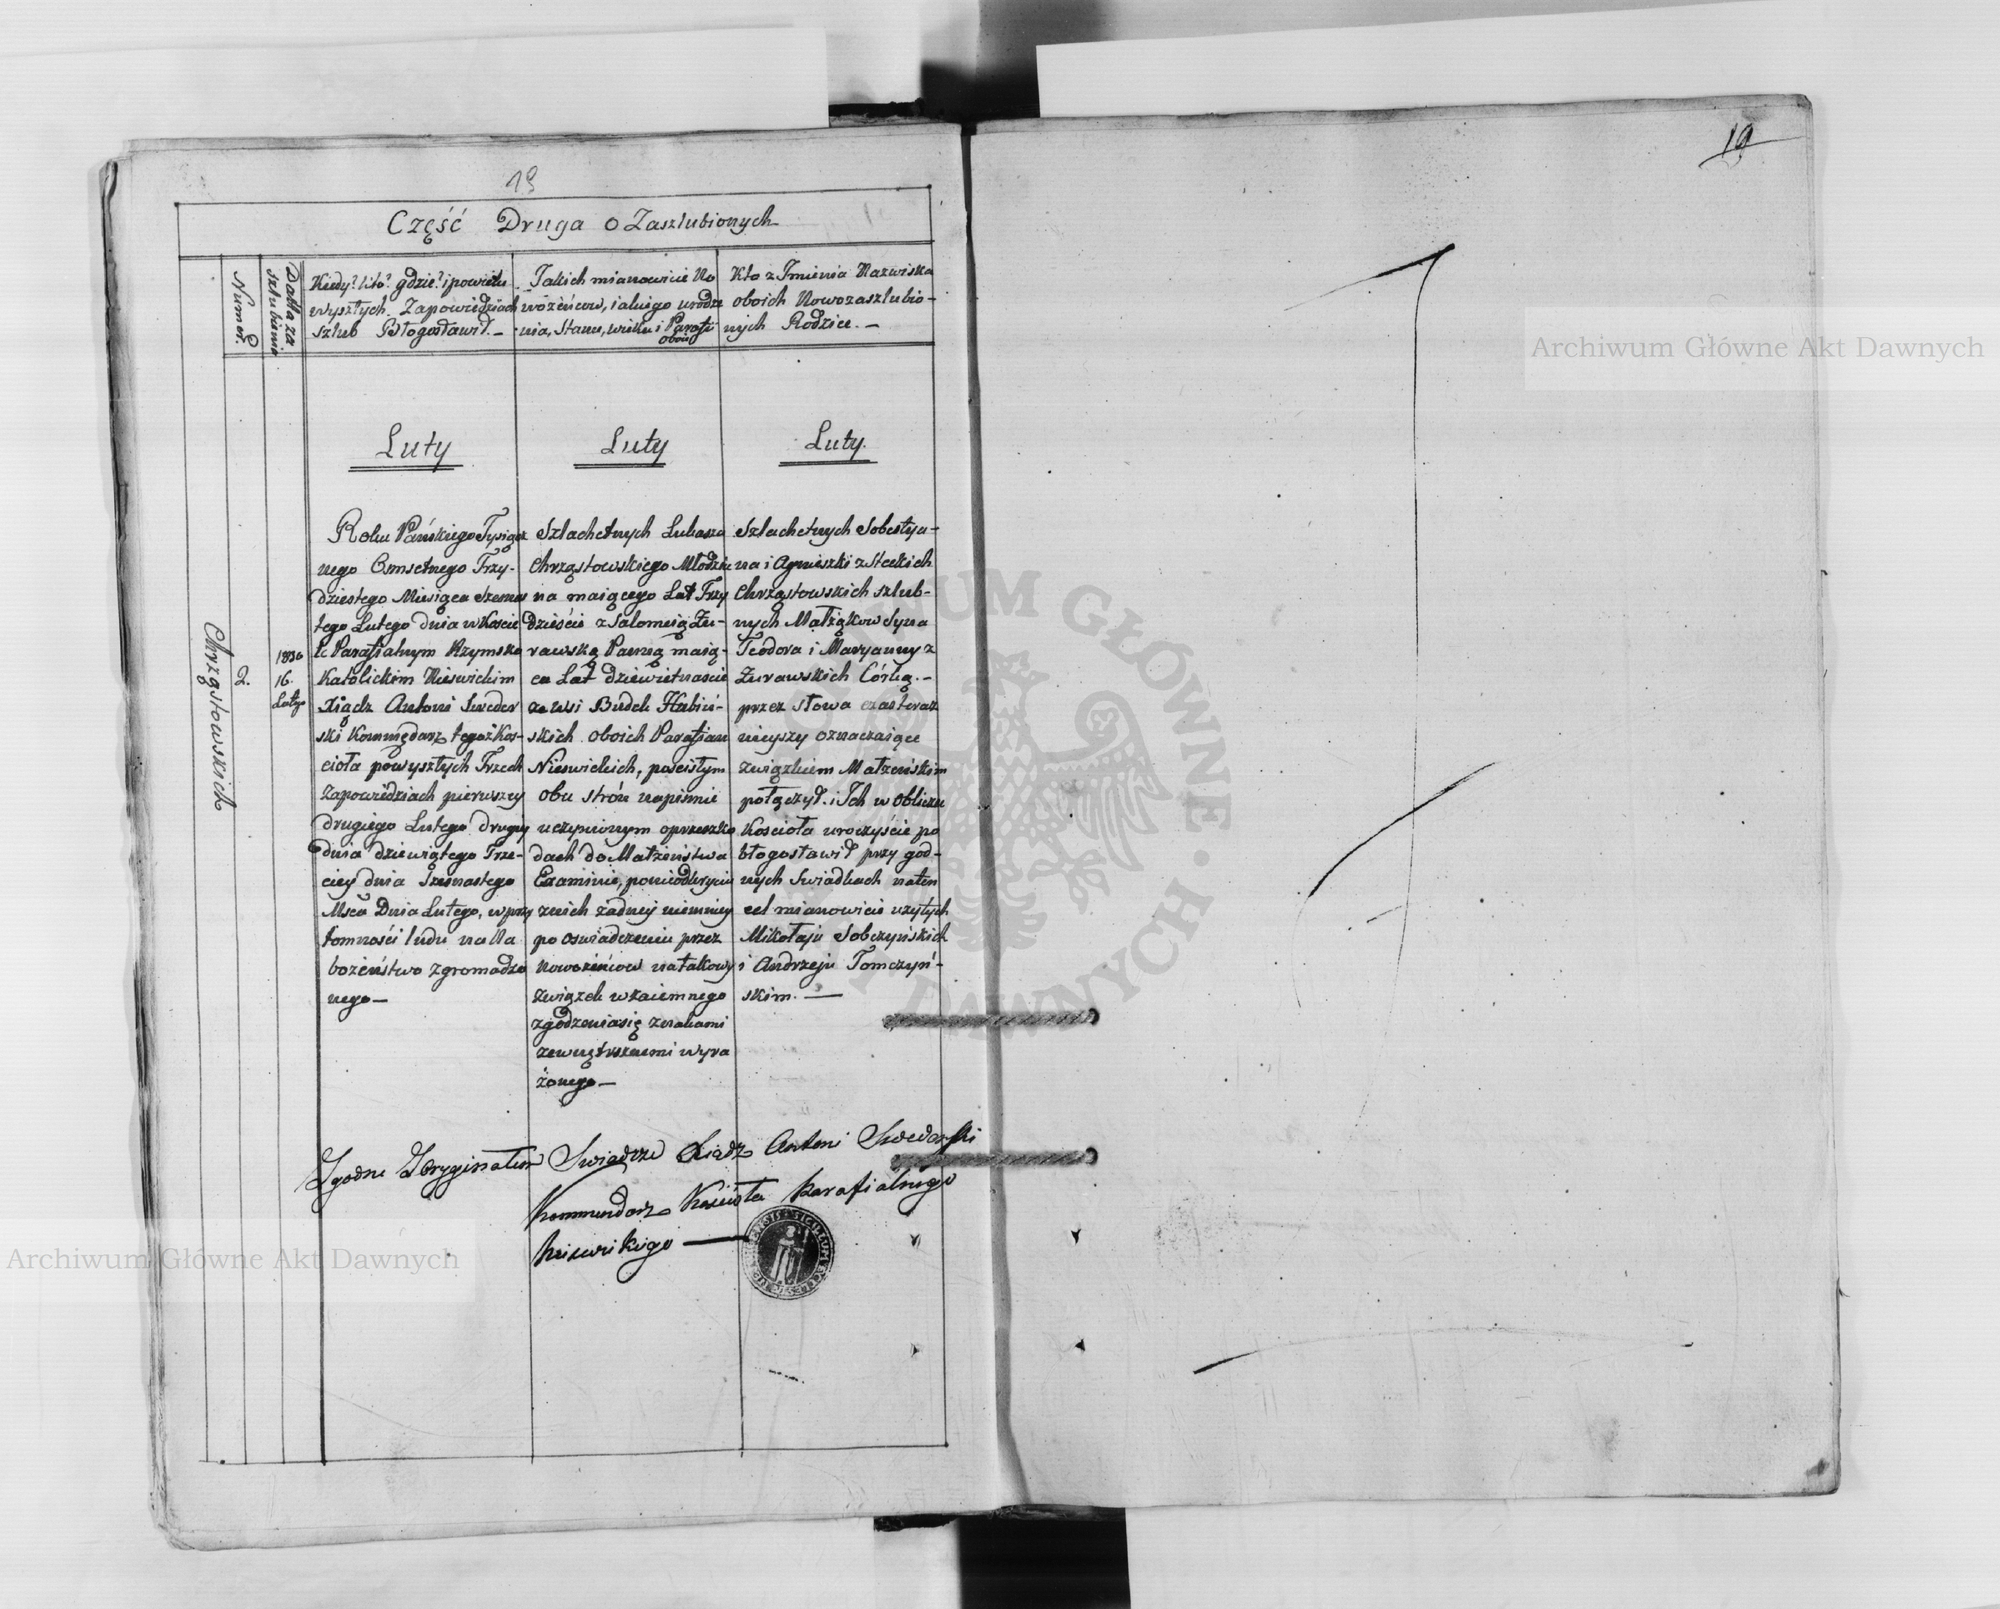 19
19
Część Druga o Zaszlubionych
Numer.
Datta za
szlubienia
Kiedy? kto? gdzie? i powielu
wyszłych Zapowiedziach
szlub Błogosławił. —
Jakich mianowicie No
wożeńcow, iakiego urodze
nia, stanu, wieku i Parafii
oboie
Kto z Imienia Nazwiska
oboich Nowozaszlubio-
nych Rodzice. —
Luty
Luty
Luty.
Chrząstowskich
2.
1830
16.
Lutego
Roku Pańskiego Tysiącz
nego Osmsetnego Trzy-
dziestego Miesiąca Szesnas
tego Lutego dnia w Koscie
le Parafialnym Rzymsko
Katolickim Nieswickim
Xiądz Antoni Sweder
ski Kommędarz tegoż Kos-
cioła powyszłych Trzech
Zapowiedziach pierwszey
drugiego Lutego drugey
dnia dziewiątego Trze-
ciey dnia Szesnastego
Msca Dnia Lutego, w przy
tomności ludu na Na
bożeństwo zgromadzo
nego —
Szlachetnych Lukasza
Chrząstowskiego Młodzie
na maiącego Lat Trzy
dzieście z Salomeią Żu-
rawską Panną maią-
ca Lat dziewietnascie
ze wsi Budek Hubiń-
skich oboich Parafian
Nieswickich, poscisłym
obu strón napismie
uczynionym o przeszko
dach do Małżeństwa
Examinie, poniodkryciu
znich żadney niemniey
po oswiadczeniu przez
Nowożeńcow natakowy
związek wzaiemnego
zgodzenia się znakami
zewnętrznemi wyra
żonego —
Szlachetnych Sobestya-
na i Agnieszki z Steckich
Chrząstowskich szlub-
nych Małżąkow Syna
Teodora i Maryanny z
Żurawskich Córką. —
przez słowa czas teraz
nieyszy oznaczaiące
Związkiem Małżeńskim
połączył i Ich w Obliczu
Koscioła uroczyście po
błogosławił przy god-
nych Swiadkach naten
cel mianowicie użytych
Mikołaju Sobczyńskich
i Andrzeju Tomczyń-
skim. —
Zgodne Zoryginałem Swiadcze Xiądz Antoni Swederski
Kommendarz Kościoła Parafialnego
Nieswickigo —
Archiwum Główne Akt Dawnych
Archiwum Główne Akt Dawnych
ARCHIWUM GŁÓWNE AKT DAWNYCH